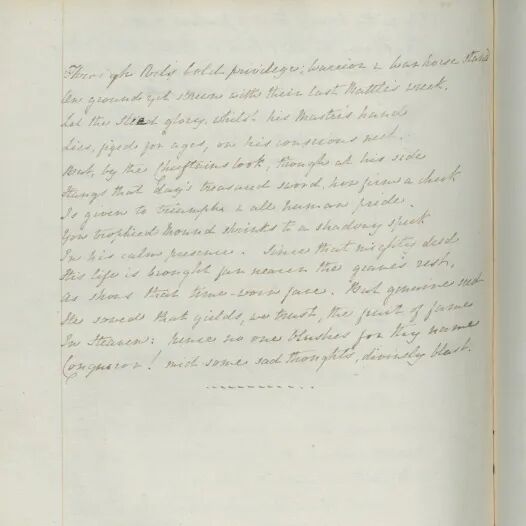 Through Art's bold privilege, Warrior & War horse stand
On ground yet strewn with their last Battle's wreck.
Let the Steed glory, whilst his Master's hand
Lies, fixed for ages, on his conscious neck.
But, by the Chieftains look, though at his side
Hangs that day's treasured sword, how firm a check
Is given to triumph & all human pride.
Yon trophied Mound shrinks to a shadowy speck
In his calm presence. Since that mighty deed
His life is brought far nearer the grave's rest,
As shows that time-worn face. But genuine seed
He sowed that yields, we trust, the fruit of fame
In Heaven: hence no one blushes for thy name
Conqueror! mid some sad thoughts, divinely blest.